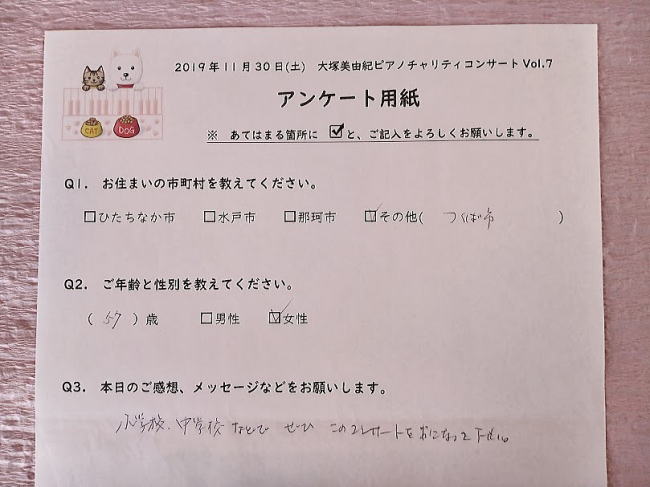 2019年11月30日(土) 大塚美由紀ピアノチャリティコンサート Vol.7
アンケート用紙
※ あてはまる箇所に ☑と、ご記入をよろしくお願いします。
CAT DOG
Q1. お住まいの市町村を教えてください。
□ひたちなか市 □水戸市 □那珂市 ☑その他( つくば市 )
Q2. ご年齢と性別を教えてください。
( 57 )歳 □男性 ☑女性
Q3. 本日のご感想、メッセージなどをお願いします。
小学校、中学校などで ぜひ このコンサートをおこなって下さい。